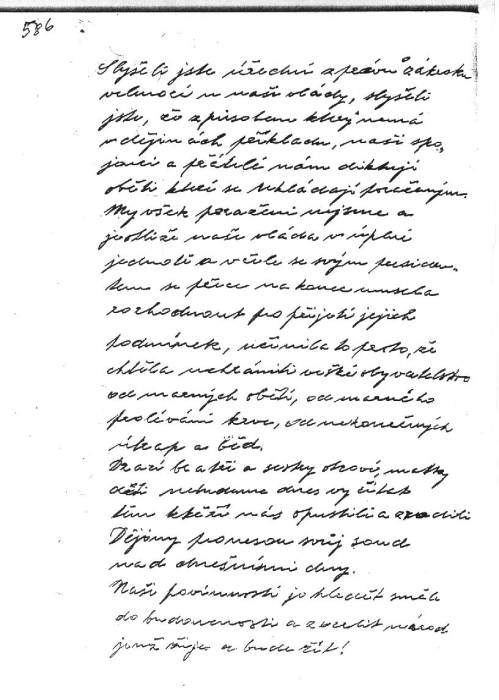 586
Slyšeli jste úřední zprávu o zákroku
velmocí u naší vlády, slyšeli
jste, že způsobem který nemá
v dějinách příkladu, naši spo-
jenci a přátelé nám diktují
oběti které se ukládají poraženým.
My však poraženi nejsme a
jestliže naše vláda v úplné
jednotě a v čele se svým presiden-
tem se přece na konec musela
rozhodnout pro přijetí jejich
podmínek, učinila to proto, že
chtěla uchránit vešké obyvatelstvo
od marných obětí, od marného
prolévání krve, od nekonečných
útrap a běd.
Drazí bratři a sestry otcové, matky
děti nebudeme dnes vyčítat
těm kteří nás opustili a zradili
Dějiny pronesou svůj soud
nad dnešními dny.
Naší povinností je hledět směle
do budoucnosti a zocelit národ
jenž žije a bude žít!